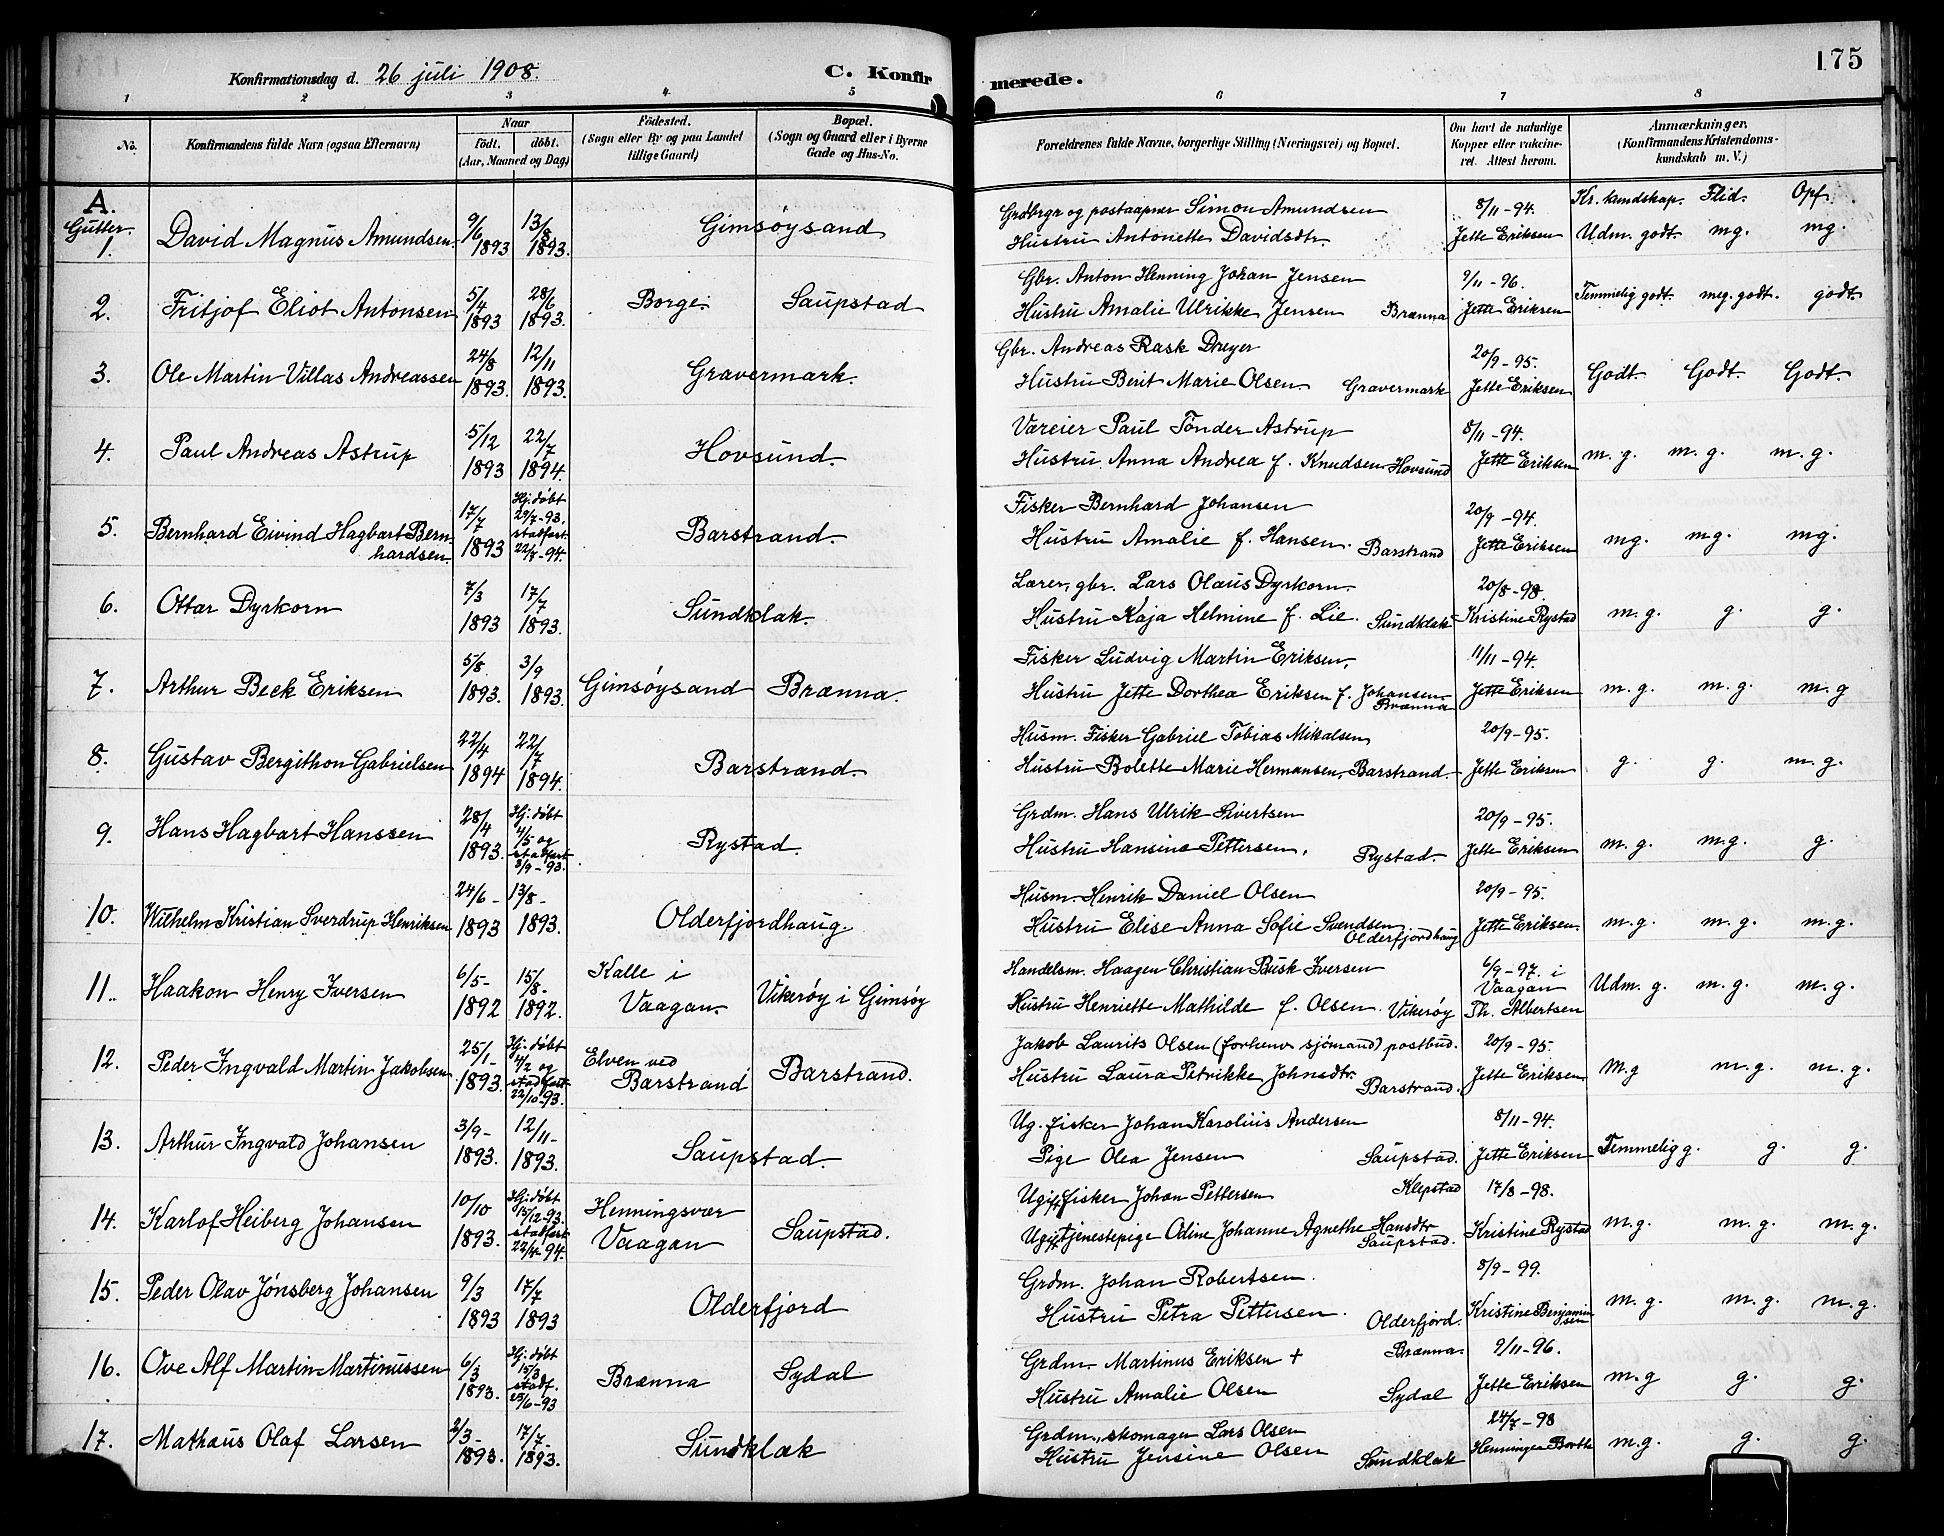 175
Konfirmationsdag d. 26 juli 1908.
C. Konfirmerede.
1 2 3 4 5 6 7 8
No.
Konfirmandens fulde Navn (ogsaa Efternavn)
Naar
født. døbt.
(Aar, Maaned og Dag)
Fødested.
(Sogn eller By og paa Landet
tillige Gaard)
Bopæl.
(Sogn og Gaard eller i Byerne
Gade og Hus-No.
Forældrenes fulde Navne, borgerlige Stilling (Næringsvei) og Bopæl.
Om havt de naturlige
Kopper eller vakcine-
ret. Attest herom.
Anmærkninger.
(Konfirmandens Kristendoms-
kundskab m. V.)
A.
Gutter.
Kr. kundskap. Flid. Opf.
1. David Magnus Amundsen 9/6 1893 13/8 1893. Gimsøysand
Grdbrgr og postaapner Simon Amundsen
Hustru Antonette Davidsdtr.
8/11-94.
Jette Eriksen
Udm. godt. mg. mg.
2. Fritjof Eliot Antonsen 5/4 1893 28/6 1893. Borge. Saupstad
Gbr. Anton Henning Johan Jensen
Hustru Amalie Ulrikke Jensen Brænna
9/11-96.
Jette Eriksen
Temmelig godt. meg. godt. godt.
3. Ole Martin Villas Andreassen 24/8 1893. 12/11 1893. Gravermark.
Gbr. Andreas Rask Dreyer
Hustru Berit Marie Olsen. Gravermark
20/9-95.
Jette Eriksen
Godt. Godt. Godt.
4. Paul Andreas Astrup 5/12 1893 22/7 1894. Hovsund.
Væreier Paul Tønder Astrup
Hustru Anna Andrea f. Knudsen Hovsund
8/11-94.
Jette Eriksen
m. g. m. g. m. g.
5. Bernhard Eivind Hagbart Bern-
hardsen. 17/7 1893 Hj. døbt
29/7-93.
stadfæst
Barstrand.
Fisker Bernhard Johansen
Hustru Amalie f. Hansen. Barstrand
20/9-94.
Jette Eriksen
mg. mg. mg.
6. Ottar Dyrkorn 7/3 1893 17/7 1893. Sundklak.
Lærer, gbr. Lars Olaus Dyrkorn.
Hustru Kaja Helmine f. Lie. Sundklak
20/8-98.
Kristine Rystad
m. g. g. g.
7. Arthur Beck Eriksen 5/8. 1893. 3/9 1893. Gimsøysand Brænna.
Fisker Ludvig Martin Eriksen,
Hustru Jette Dorthea Eriksen f. Johansen.
Brænna
11/11-94.
Jette Eriksen
m. g. m. g. m. g
8. Gustav Bergithon Gabrielsen 22/4 1894 22/7 1894. Barstrand.
Husm. Fisker Gabriel Tobias Mikalsen
Hustru Bolette Marie Hermansen, Barstrand.
20/9-95.
Jette Eriksen
g. g. m. g.
9. Hans Hagbart Hanssen 28/4 1893. Hj. døbt
4/5 og
stadfæst
3/9-93. Rystad.
Grdm. Hans Ulrik Sivertsen
Hustru Hansine Pettersen, Rystad.
20/9-95.
Jette Eriksen
m. g. m. g. g.
10. Wilhelm Kristian Sverdrup Henriksen 24/6- 1893 13/8- 1893. Olderfjordhaug.
Husm. Henrik Daniel Olsen
Hustru Elise Anna Sofie Svendsen
Olderfjordhaug
20/9-95.
Jette Eriksen.
m. g. m. g. m. g.
11. Haakon Henry Iversen 6/5- 1892 15/8. 1892. Kalle i
Vaagan. Vikerøy i Gimsøy
Handelsm. Haagen Christian Busk Iversen
Hustru Henriette Mathilde f. Olsen. Vikerøy
6/9-97. i
Vaagan
Th. Albertsen
Udm. g. m. g. m. g.
12. Peder Ingvald Martin Jakobsen 25/1- 1893. Hj. døbt
4/2 og
stadfæst
22/10-93. Elven ved
Barstrand Barstrand.
Jakob Laurits Olsen (forhenv. sjømand) postbud.
Hustru Laura Petrikke Johnsdtr. Barstrand.
20/9-95.
Jette Eriksen
M.g m. g. m. g.
13. Arthur Ingvald Johansen 3/9- 1893. 12/11- 1893. Saupstad.
Ug. fisker Johan Karolius Andersen
Pige Olea Jensen Saupstad.
8/11-94.
Jette Eriksen
Temmelig g. g. g.
14. Karlof Heiberg Johansen 10/10 1893. Hj. døbt
15/12-93.
stadfæst
Henningsvær
Vaagan Saupstad.
Ugift fisker Johan Pettersen Klepstad
Ugift tjenestepige Odine Johanne Agnethe Hansdtr
Saupstad.
17/8-98.
Kristine Rystad
m. g. m. g. m. g.
15. Peder Olav Jønsberg Johansen 9/3 1893 17/7 1893 Olderfjord
Grdm. Johan Robertsen.
Hustru Petra Pettersen. Olderfjord.
8/9-99.
Kristine Benjamin
sen
m. g. m. g. m. g.
16. Ove Alf Martin Martinussen 6/3 1893. Hj. døbt
15/3
stadf.
25/6-93 Brænna Sydal
Grdm. Martinus Eriksen + Brænna.
Hustru Amalie Olsen Sydal
9/11-96.
Jette Eriksen
m. g g. g.
17. Mathæus Olaf Larsen 2/3- 1893. 17/7- 1893. Sundklak
Grdm., skomager Lars Olsen
Hustru Jensine Olsen Sundklak
24/7-98
m. g. g. g.